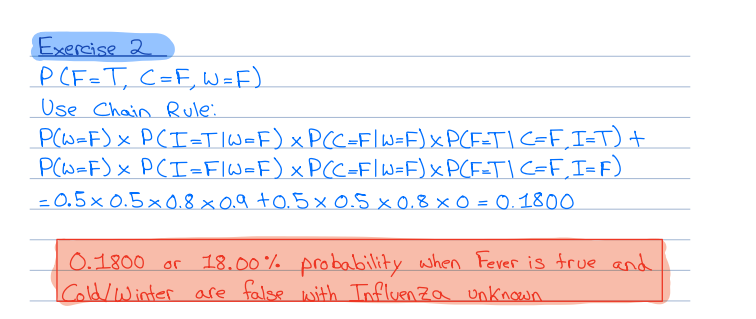 Exercise 2
P(F=T, C=F, W=F)
Use Chain Rule:
P(W=F) x P(I=T|W=F) x P(C=F|W=F) x P(F=T| C=F, I=T) +
P(W=F) x P(I=F|W=F) x P(C=F|W=F) x P(F=T| C=F, I=F)
= 0.5 x 0.5 x 0.8 x 0.9 + 0.5 x 0.5 x 0.8 x 0 = 0.1800
0.1800 or 18.00% probability when Fever is true and
Cold/Winter are false with Influenza unknown